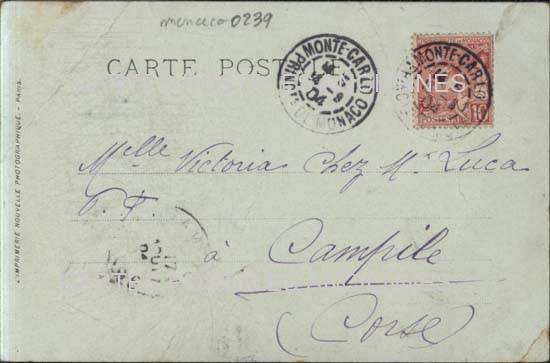 monaco 0239
CARTE POSTALE
MONTE-CARLO
PRINCTÉ DE MONACO
04
MONTE-CARLO
04
10
Melle Victoria Chez Mr Luca
P. T.
à
Campile
(Corse)
L'IMPRIMERIE NOUVELLE PHOTOGRAPHIQUE - PARIS.